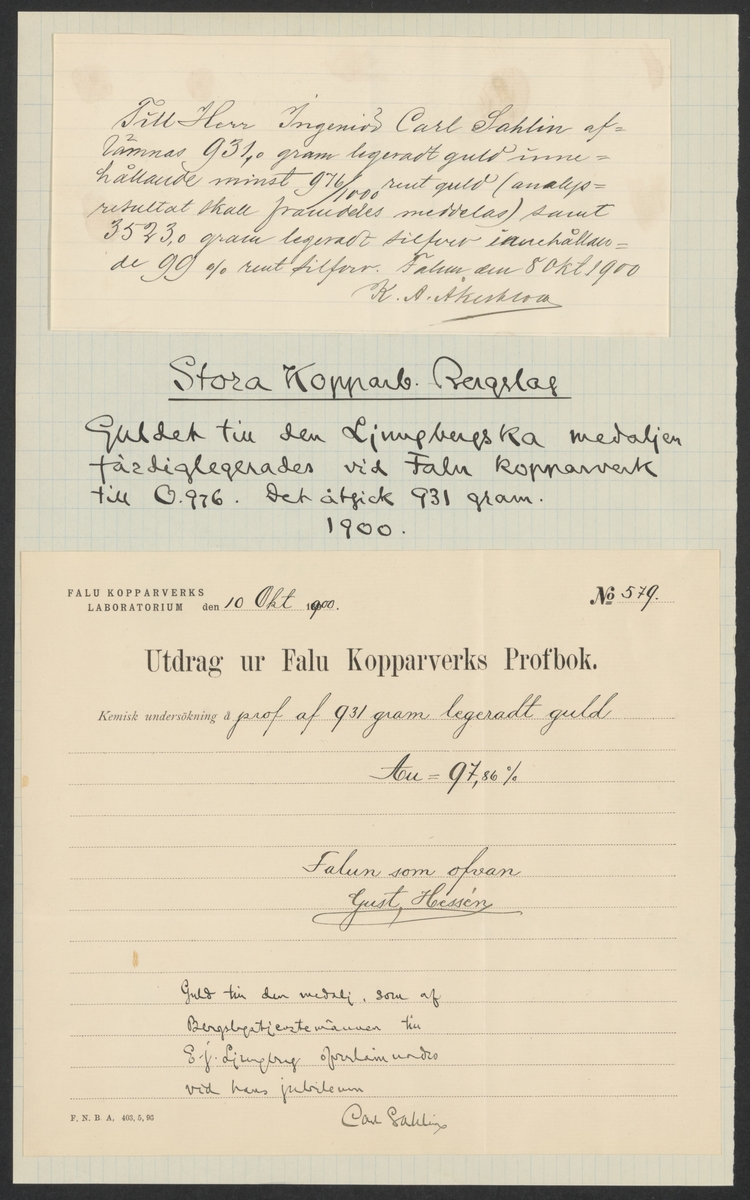 Till Herr Ingeniör Carl Sahlin af=
lämnas 931,0 gram legeradt guld inne=
hållande minst 976/1000 rent guld (analys=
resultat skall framdeles meddelas) samt
3523,0 gram legeradt silfver innehållan=
de 99 % rent silfver. Falun den 8 Okt 1900
K. A.
Stora Kopparb. Bergslag
Guldet till den Ljungbergska medaljen
färdiglegerades vid Falu kopparverk
till 0.976. Det åtgick 931 gram.
1900.
FALU KOPPARVERKS
LABORATORIUM den 10 Okt 1900.
No 579.
Utdrag ur Falu Kopparverks Profbok.
Kemisk undersökning å prof af 931 gram legeradt guld
Au = 97,86 %
Falun som ofvan
Gust, Hessén
Guld till den medalj, som af
Bergslagstjenstemännen till
E. J. Ljungberg öfverlämnades
vid hans jubileum
Carl Sahlin
F. N. B. A. 403, 5, 96